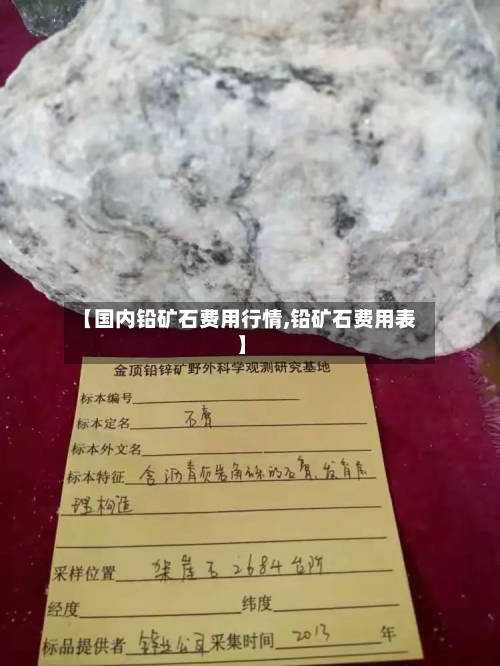 【国内铅矿石费用行情,铅矿石费用表
】
金顶铅锌矿野外科学观测研究基地
标本编号
标本定名 石膏
标本外文名
标本特征 含沥青质岩角砾的石膏、发育
理构造
采样位置 架崖 2684台阶
经度 纬度
标品提供者 锌业公司 采集时间 2013 年